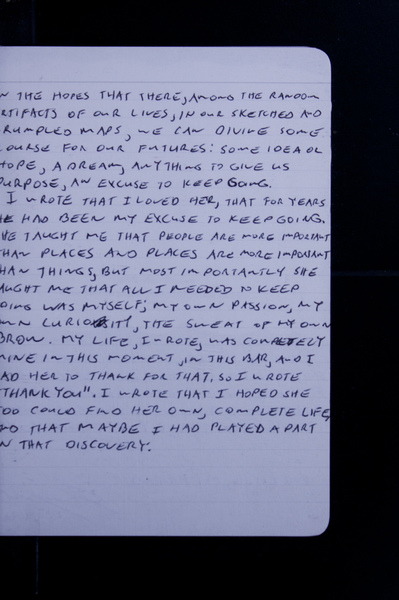 N THE HOPES THAT THERE, AMONG THE RANDOM
RTIFACTS OF OUR LIVES, IN OUR SKETCHED AND
RUMPLED MAPS, WE CAN DIVINE SOME
OURSE FOR OUR FUTURES: SOME IDEA OR
HOPE, A DREAM, ANYTHING TO GIVE US
PURPOSE, AN EXCUSE TO KEEP GOING.
I WROTE THAT I LOVED HER, THAT FOR YEARS
HE HAD BEEN MY EXCUSE TO KEEP GOING.
HE TAUGHT ME THAT PEOPLE ARE MORE IMPORTANT
THAN PLACES AND PLACES ARE MORE IMPORTANT
HAN THINGS, BUT MOST IMPORTANTLY SHE
AUGHT ME THAT ALL I NEEDED TO KEEP
OING WAS MYSELF; MY OWN PASSION, MY
WN CURIOSITY, THE SWEAT OF MY OWN
BROW. MY LIFE, I WROTE, WAS COMPLETELY
MINE IN THIS MOMENT, IN THIS BAR, AND I
AD HER TO THANK FOR THAT. SO I WROTE
"THANK YOU". I WROTE THAT I HOPED SHE
OO COULD FIND HER OWN, COMPLETE LIFE,
ND THAT MAYBE I HAD PLAYED A PART
N THAT DISCOVERY.